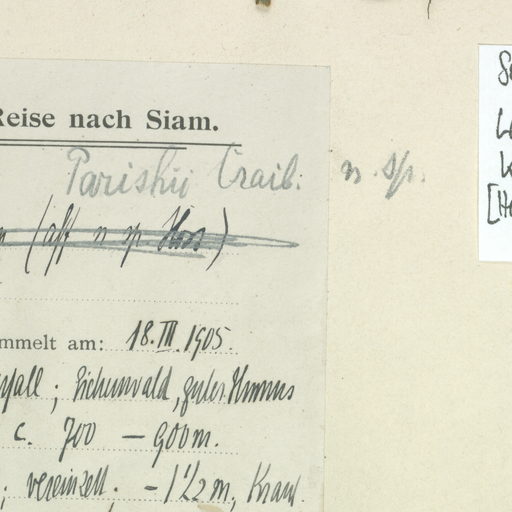 Reise nach Siam.
Parishii Craib. n. sp.
(aff n sp. Hoss)
mmelt am: 18.III.1905.
fall; Eichenwald, guter Humus
c. 700 – 900 m.
; vereinzelt; – 1 1/2 m, Kraut.